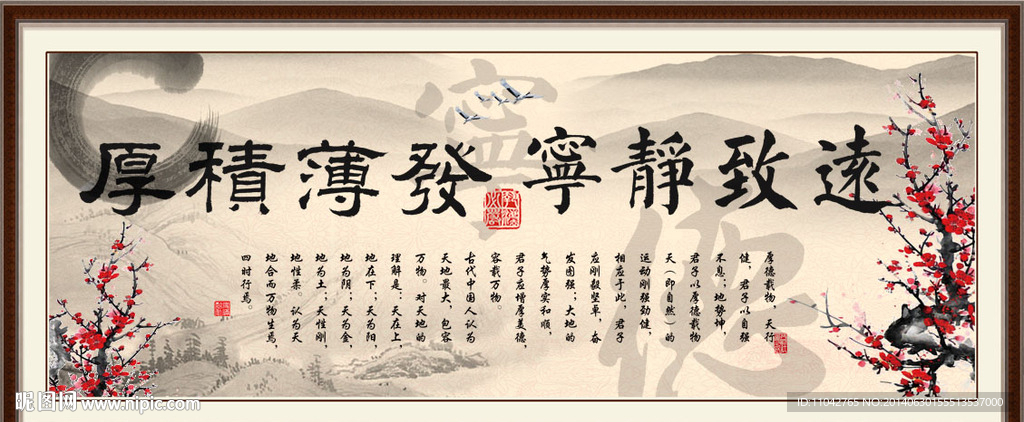 厚積薄發 寧靜致遠
寧
德
厚德载物，天行
健，君子以自强
不息；地势坤，
君子以厚德载物
天（即自然）的
运动刚强劲健，
相应于此，君子
应刚毅坚卓，奋
发图强；大地的
气势厚实和顺，
君子应增厚美德，
容载万物。
古代中国人认为
天地最大，包容
万物。对天地的
理解是：天在上，
地在下；天为阳
地为阴；天为金，
地为土；天性刚，
地性柔。认为天
地合而万物生焉，
四时行焉。
昵图网 www.nipic.com
ID:11042765 NO:20140630155513537000